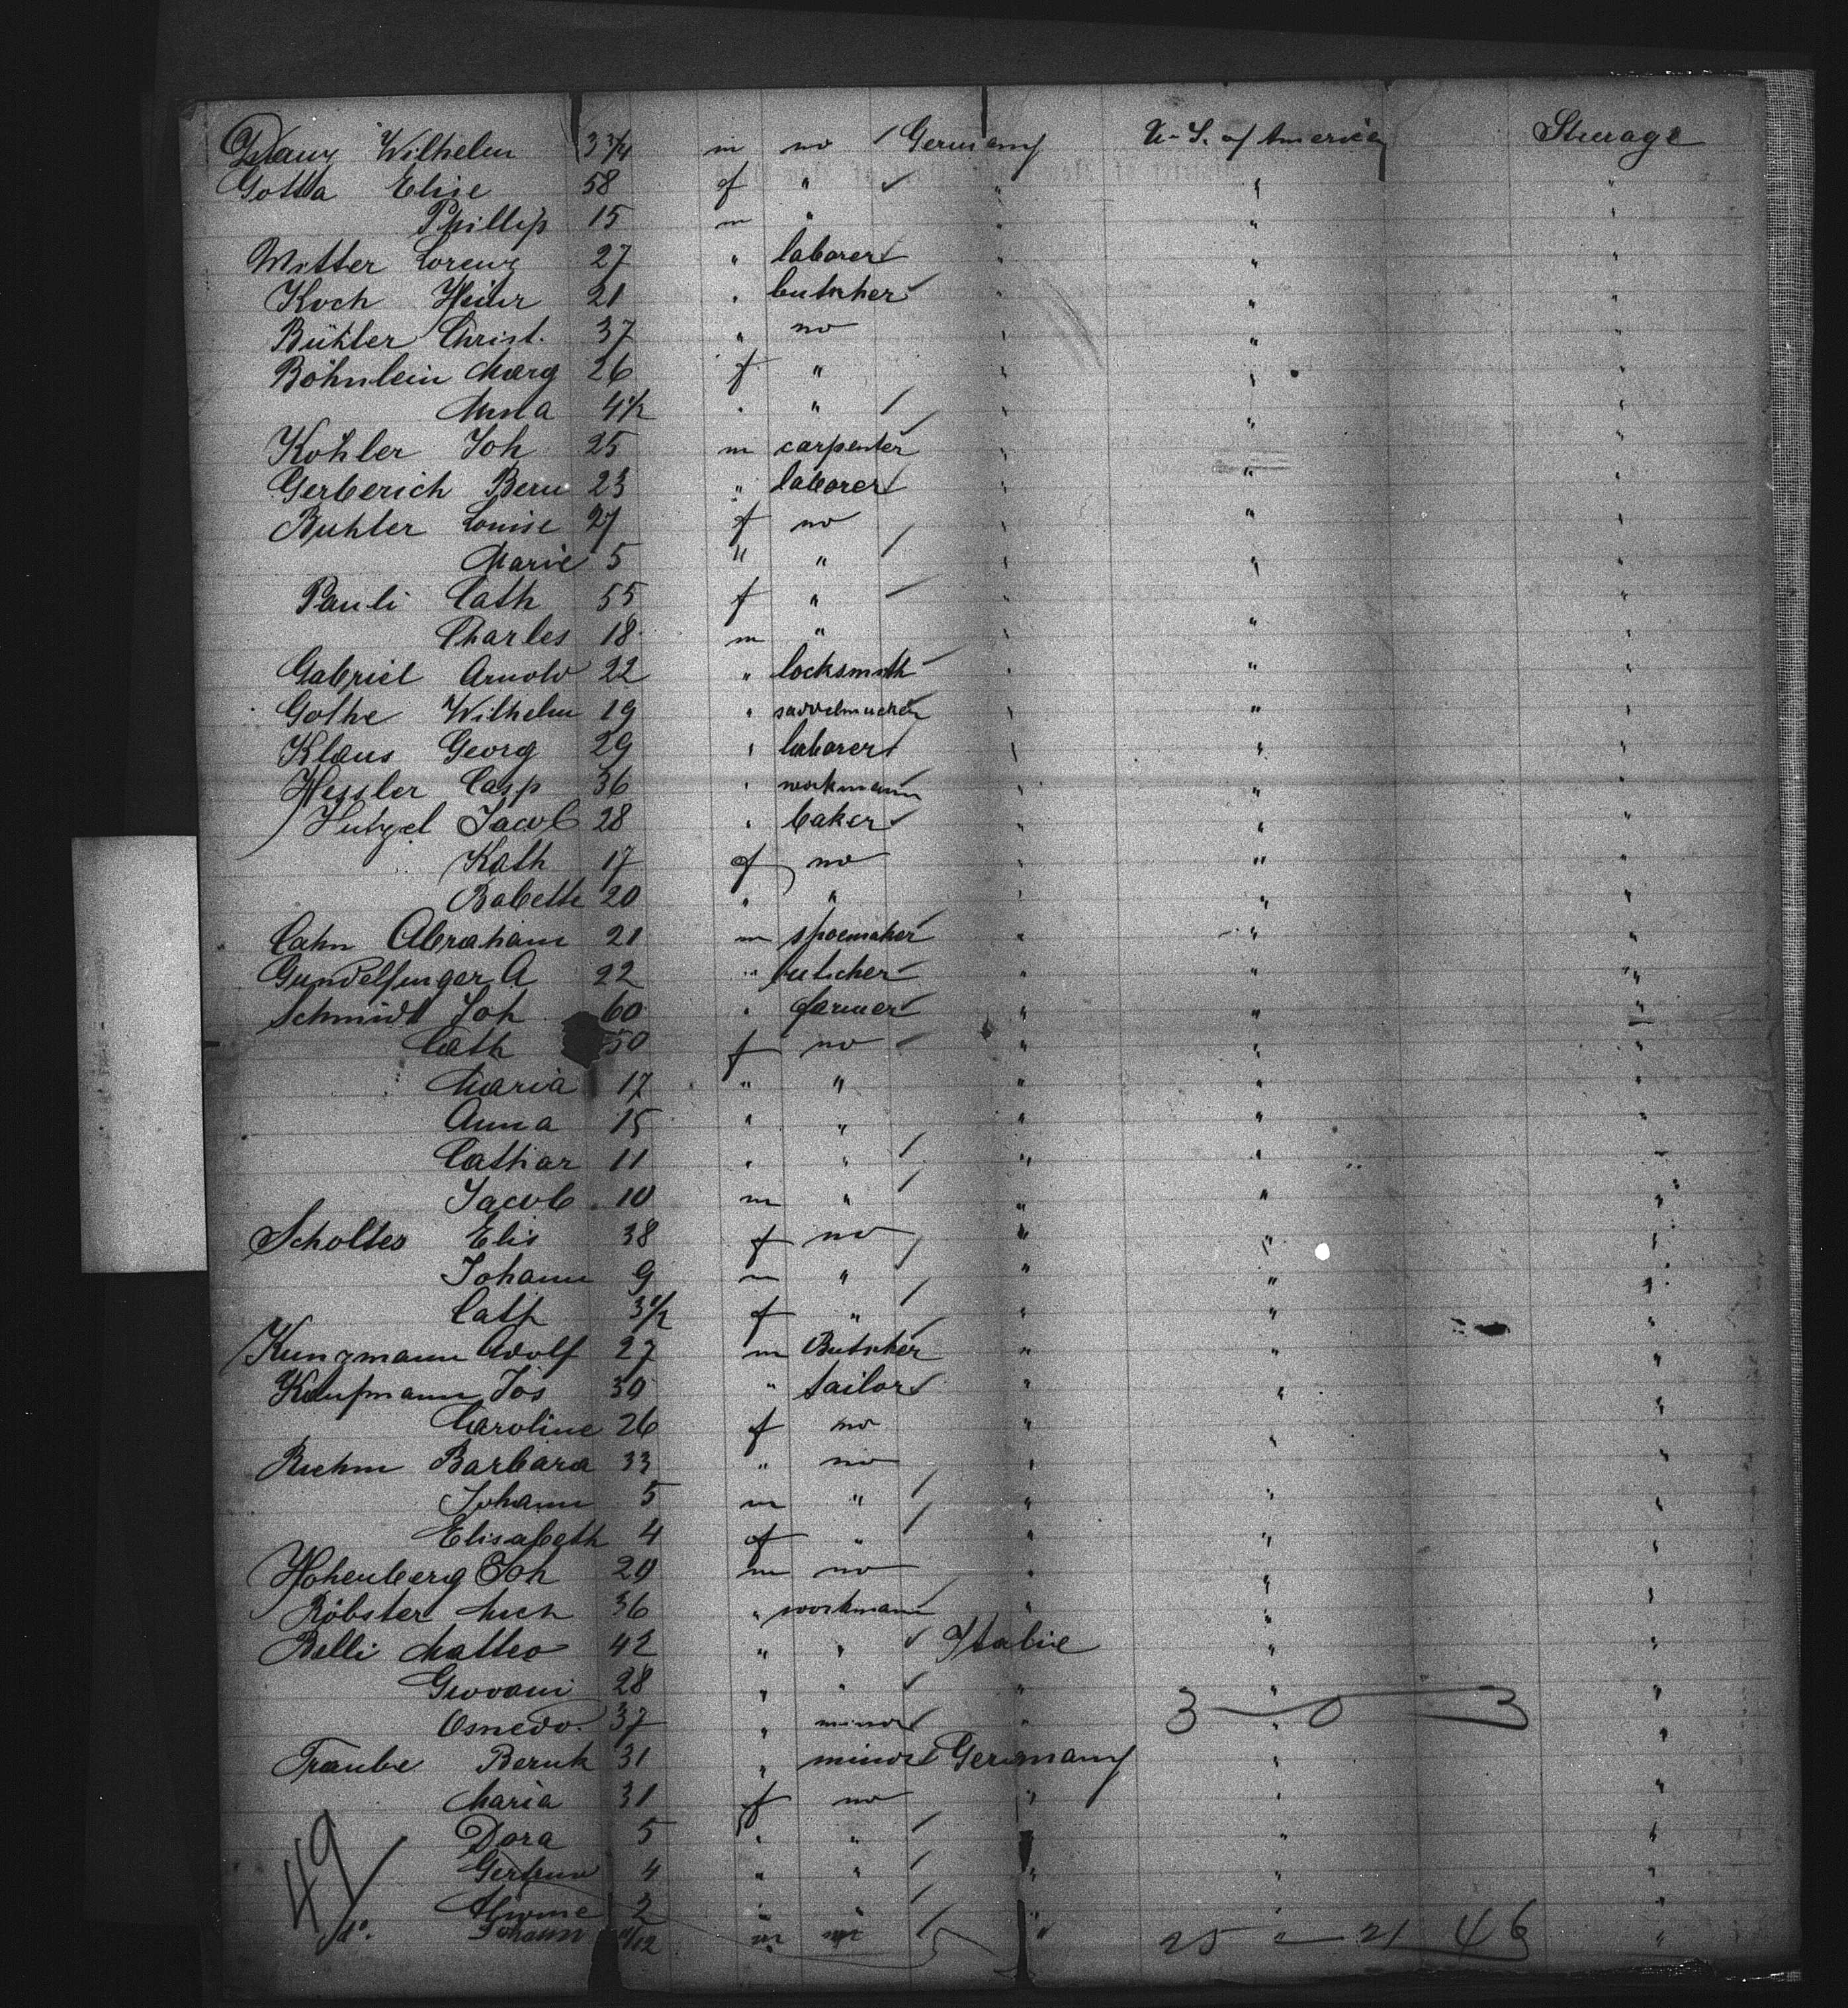 Wilhelm 3 3/4 m no / Germany U-S. of America Steerage
Gotta Elise 58 f " ✓ " " "
Phillip 15 m " " " "
Witter Lorenz 27 " laborer ✓ " " "
Koch Heinr 21 " butcher ✓ " " "
Bühler Christ. 37 " no " " "
Böhnlein Marg 26 f " " " "
Anna 4 1/2 " " / " " "
Köhler Joh 25 m carpenter ✓ " " "
Gerberich Bern 23 " laborer ✓ " " "
Buhler Louise 27 f no " " "
Marie 5 " " / " " "
Pauli Cath 55 f " / " " "
Charles 18 m " " " "
Gabriel Arnold 22 " locksmith ✓ " " "
Gothe Wilhelm 19 " " " "
Klaus Georg 29 " laborer ✓ " " "
Hessler Casp 36 " workmann " " "
Hutzel Jacob 28 " baker ✓ " " "
Kath 17 f no " " "
Babette 20 " " " " "
Cahn Abraham 21 m shoemaker ✓ " " "
Gundelfinger A 22 " butcher ✓ " " "
Schmidt Joh 60 " farmer ✓ " " "
Cath 50 f no ✓ " " "
Maria 17 " " " " "
Anna 15 " " " " "
Cathar 11 " " / " " "
Jacob 10 m " / " " "
Scholtes Elis 38 f no / " " "
Johann 9 m " / " " "
Cath 3 1/2 f " " " "
Kunzmann Adolf 27 m Butcher ✓ " " "
Kaufmann Jos 30 " tailor ✓ " " "
Caroline 26 f no " " "
Riehm Barbara 33 " no " " "
Johann 5 m " / " " "
Elisabeth 4 f " / " " "
Hohenberg Joh 20 m no " " "
Röbster Mich 36 " workmann " " "
Belli Matteo 42 " " ✓ Italie " "
Giovani 28 " " ✓ " " "
Osnedo. 37 " minor ✓ " " "
3 — 0 — 3
Traube Bernh 31 " minor ✓ Germany " "
Maria 31 f no " " "
Dora 5 " " / " " "
Gertrud 4 " " / " " "
2 " " / " " "
Johann 11/12 m / " "
49
25 — 21 46